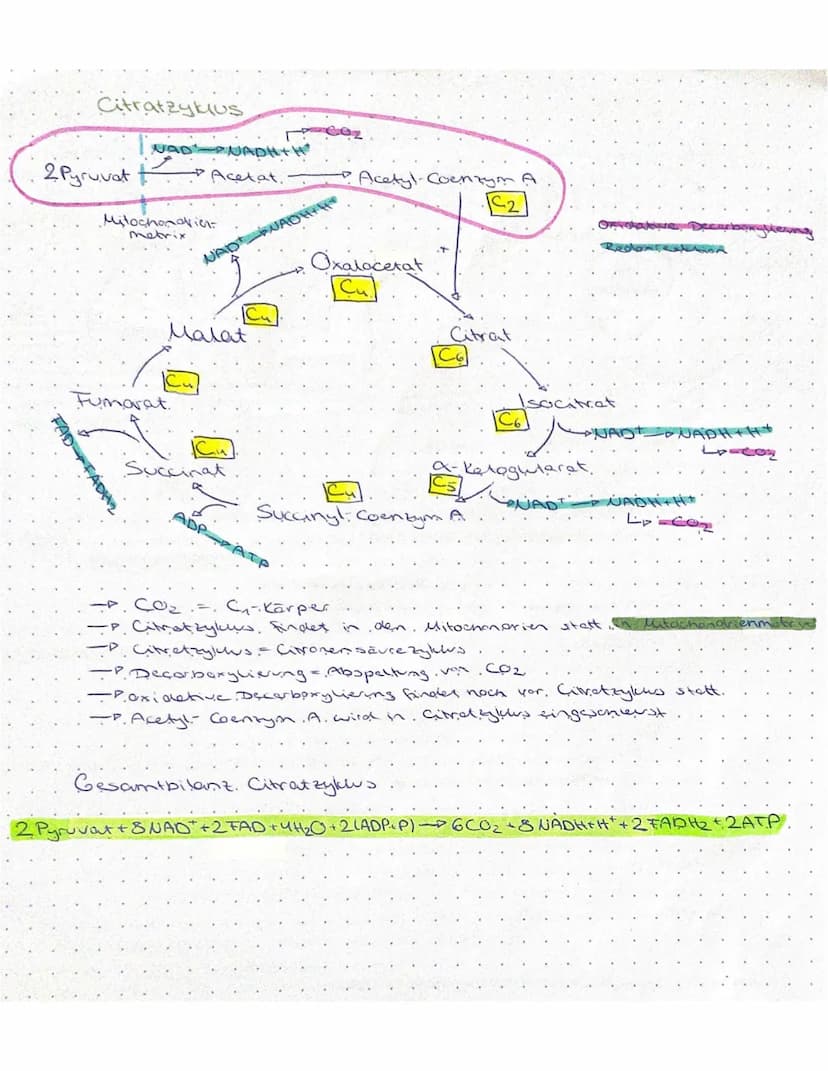 Citratzyklus
CO2
NAD+ → NADH+H+
2 Pyruvat → Acetat → Acetyl-Coenzym A
C2
Mitochondrien-
matrix
NAD+ → NADH+H+
Oxidative Decarboxylierung
Redoxreaktion
Oxalacetat
C4
C4
Malat
Citrat
C6
C4
Fumarat
Isocitrat
C6
NAD+ → NADH+H+
CO2
C4
FAD → FADH2
Succinat
α-Ketoglutarat
C5
C4
NAD+ → NADH+H+
Succinyl-Coenzym A
CO2
ADP → ATP
→ CO2 = C1-Körper
→ Citratzyklus findet in den Mitochondrien statt in Mitochondrienmatrix
→ Citratzyklus = Citronensäurezyklus
→ Decarboxylierung = Abspaltung von CO2
→ oxidative Decarboxylierung findet noch vor Citratzyklus statt.
→ Acetyl-Coenzym A wird in Citratzyklus eingeschleust
Gesamtbilanz Citratzyklus
2 Pyruvat + 8 NAD+ + 2 FAD + 4H2O + 2(ADP+P) → 6CO2 + 8 NADH+H+ + 2 FADH2 + 2ATP